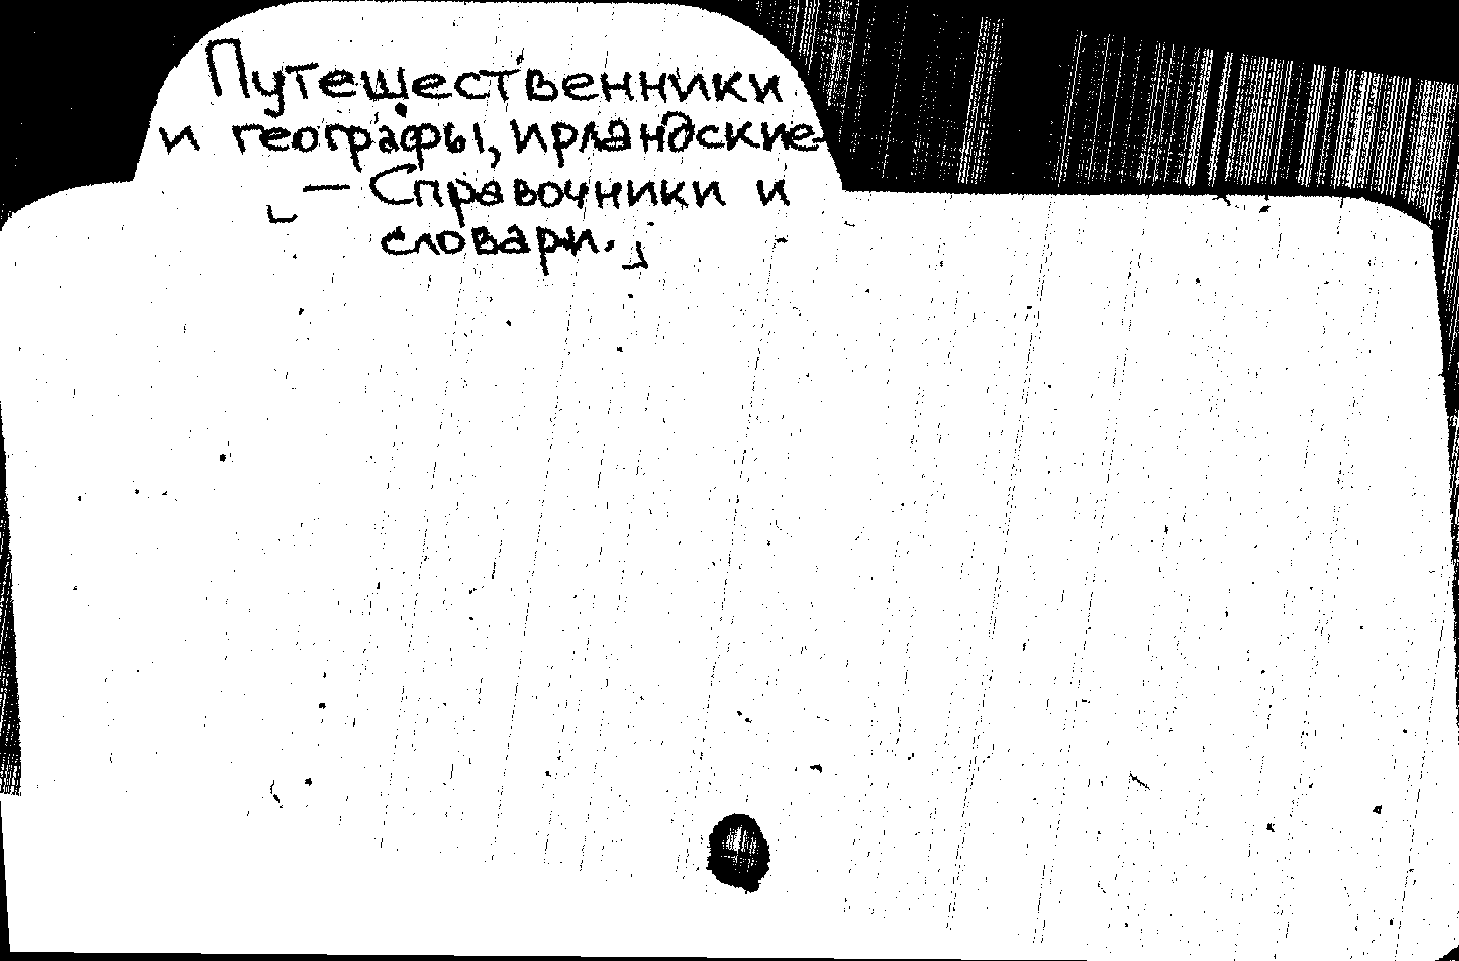 Путешественники
и географы, ирландские
— Справочники и
словари.